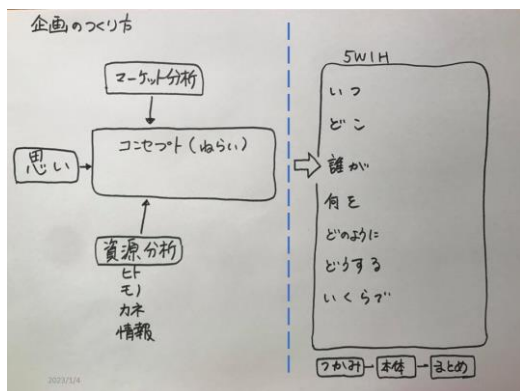 企画のつくり方
マーケット分析
思い
コンセプト(ねらい)
資源分析
ヒト
モノ
カネ
情報
5W1H
いつ
どこ
誰が
何を
どのように
どうする
いくらで
つかみ
本体
まとめ
2023/1/4